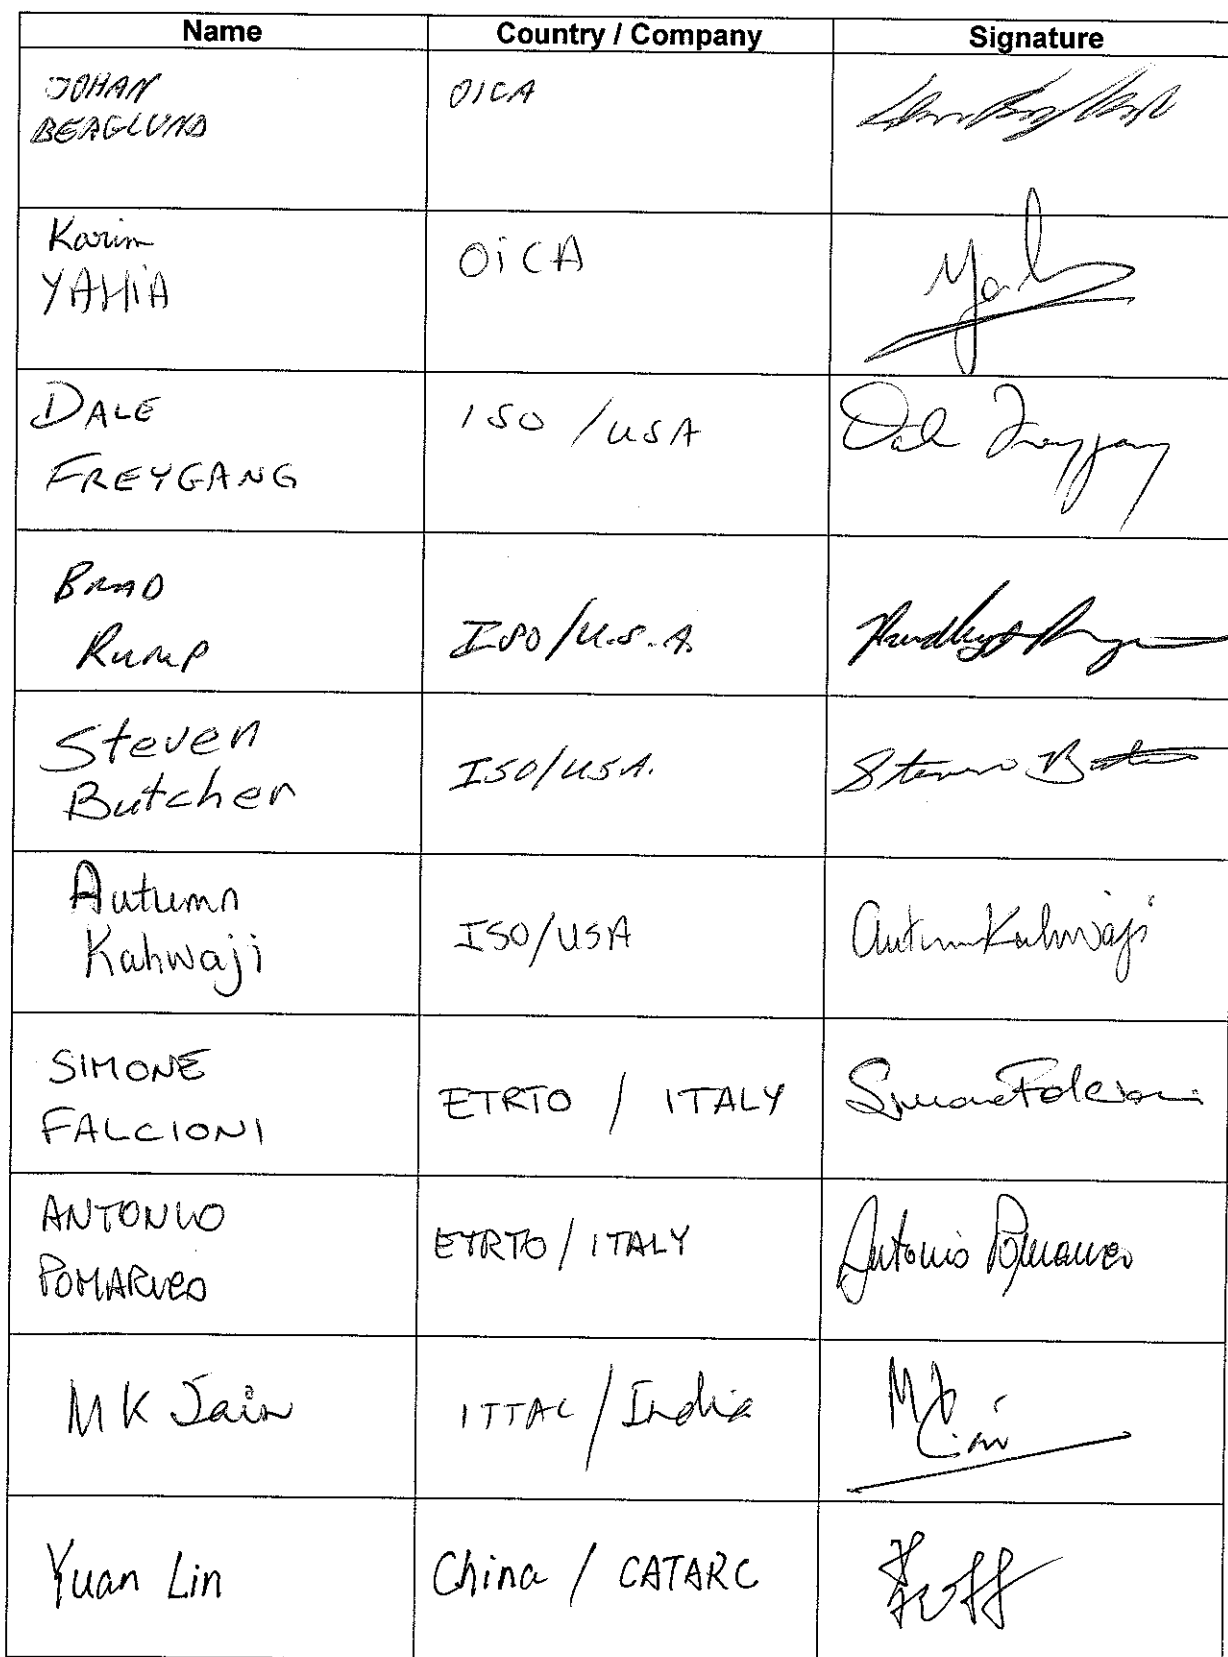 Name Country / Company Signature
JOHAN
BERGLUND
OICA
Karim
YAHIA
OiCA
DALE
FREYGANG
ISO / USA
Dale Freygang
BRAD
RUMP
ISO/U.S.A.
Steven
Butcher
ISO/USA.
Autumn
Kahwaji
ISO/USA
Autumn Kahwaji
SIMONE
FALCIONI
ETRTO / ITALY
Simone Falcioni
ANTONIO
ETRTO / ITALY
Antonio
MK Jain
ITTAC / India
Yuan Lin
China / CATARC